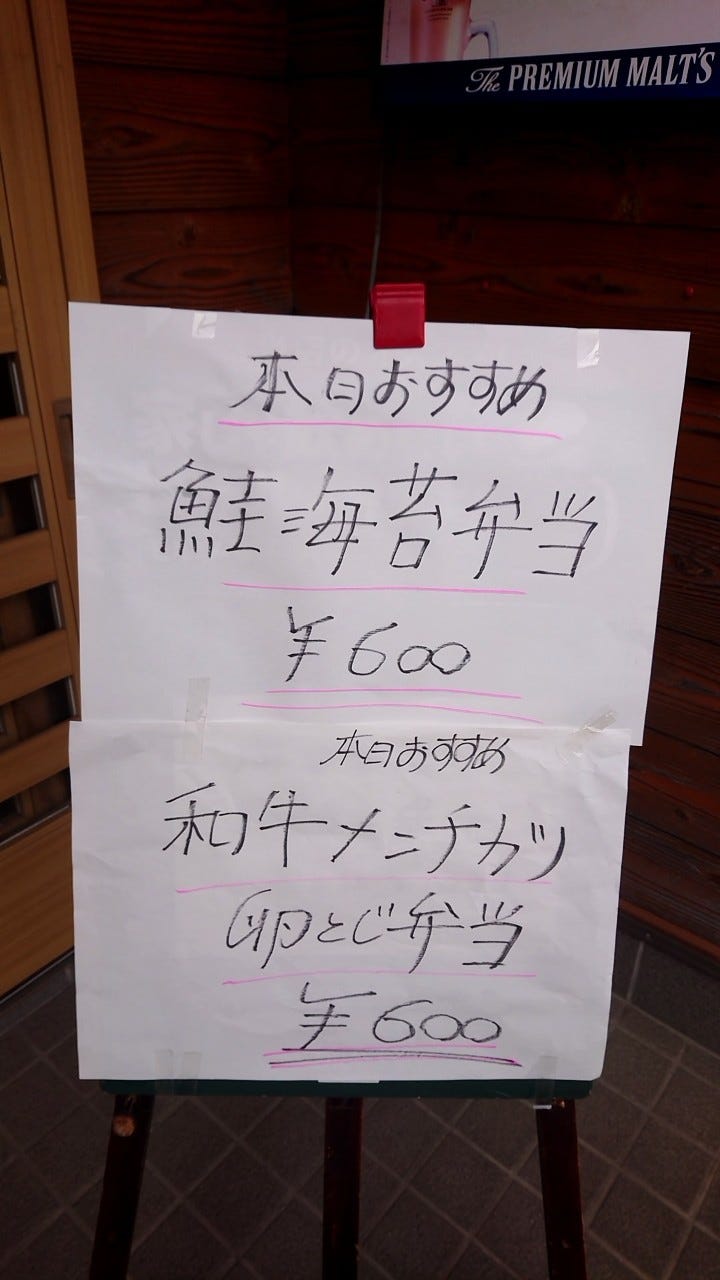 The PREMIUM MALT'S
本日おすすめ
鮭海苔弁当
¥600
本日おすすめ
和牛メンチカツ
卵とじ弁当
¥600